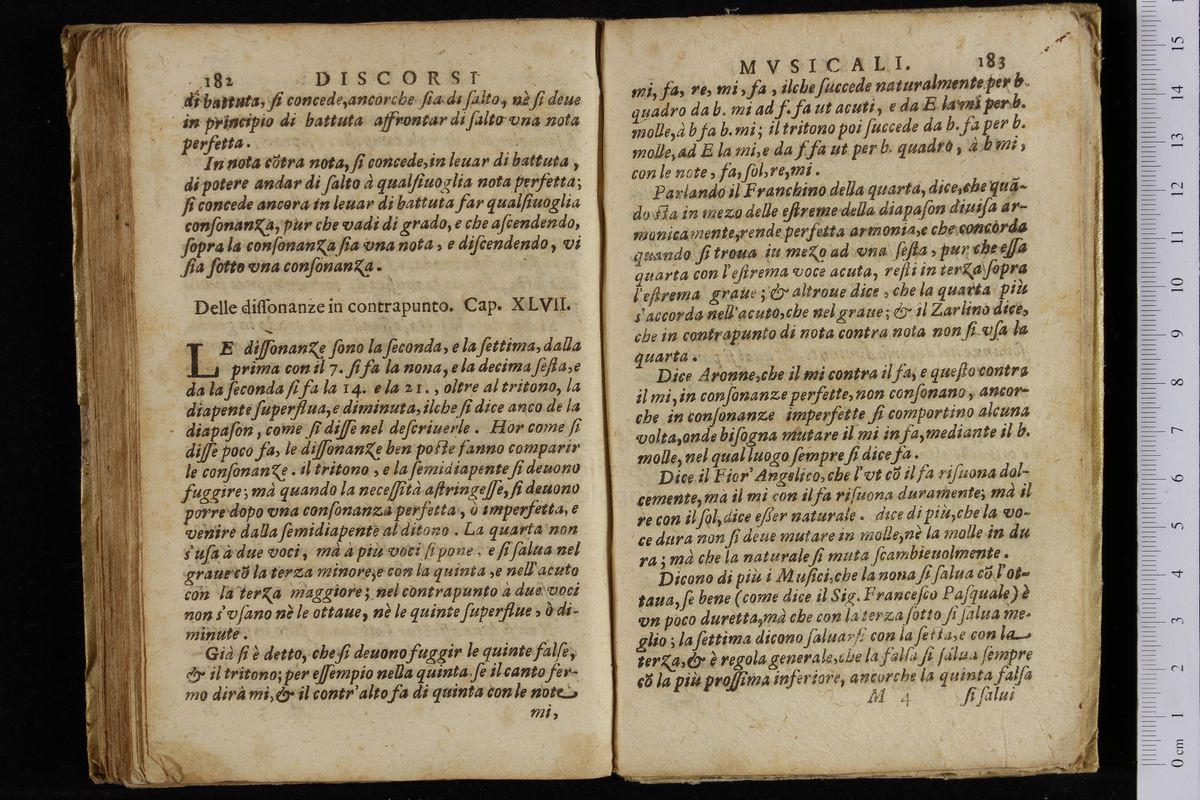 182 DISCORSI
di battuta, ſi concede,ancorche ſia di ſalto, nè ſi deue
in principio di battuta affrontar di ſalto vna nota
perfetta.
In nota cõtra nota, ſi concede,in leuar di battuta,
di potere andar di ſalto à qualſiuoglia nota perfetta;
ſi concede ancora in leuar di battuta far qualſiuoglia
conſonanza, pur che vadi di grado, e che aſcendendo,
ſopra la conſonanza ſia vna nota, e diſcendendo, vi
ſia ſotto vna conſonanza.
Delle diſſonanze in contrapunto. Cap. XLVII.
LE diſſonanze ſono la ſeconda, e la ſettima, dalla
prima con il 7. ſi fa la nona, e la decima ſeſta,e
da la ſeconda ſi fa la 14. e la 21., oltre al tritono, la
diapente ſuperflua,e diminuta, ilche ſi dice anco de la
diapaſon, come ſi diſſe nel deſcriuerle. Hor come ſi
diſſe poco fa, le diſſonanze ben poſte fanno comparir
le conſonanze. il tritono, e la ſemidiapente ſi deuono
fuggire; mà quando la neceſſità aſtringeſſe, ſi deuono
porre dopo vna conſonanza perfetta, ò imperfetta, e
venire dalla ſemidiapente al ditono. La quarta non
s'uſa à due voci, mà à più voci ſi pone, e ſi ſalua nel
graue cõ la terza minore,e con la quinta,e nell'acuto
con la terza maggiore; nel contrapunto à due voci
non s'vſano nè le ottaue, nè le quinte ſuperflue, ò di-
minute.
Già ſi è detto, che ſi deuono fuggir le quinte falſe,
& il tritono; per eſſempio nella quinta ſe il canto fer-
mo dirà mi,& il contr'alto fa di quinta con le note
mi,
MVSICALI. 183
mi, fa, re, mi, fa, ilche ſuccede naturalmente per b.
quadro da b. mi ad f. fa ut acuti, e da E la mi per b.
molle, à b fa b. mi; il tritono poi ſuccede da b. fa per b.
molle, ad E la mi,e da f fa ut per b. quadro, à b mi,
con le note, fa, ſol, re, mi.
Parlando il Franchino della quarta, dice,che quã-
do ſta in mezo delle eſtreme della diapaſon diuiſa ar-
monicamente,rende perfetta armonia,e che concorda
quando ſi troua iu mezo ad vna ſeſta, pur che eſſa
quarta con l'eſtrema voce acuta, reſti in terza ſopra
l'eſtrema graue; & altroue dice, che la quarta più
s'accorda nell'acuto,che nel graue; & il Zarlino dice,
che in contrapunto di nota contra nota non ſi vſa la
quarta.
Dice Aronne,che il mi contra il fa, e queſto contra
il mi, in conſonanze perfette, non conſonano, ancor-
che in conſonanze imperfette ſi comportino alcuna
volta,onde biſogna mutare il mi in fa,mediante il b.
molle, nel qual luogo ſempre ſi dice fa.
Dice il Fior' Angelico,che l'vt cõ il fa riſuona dol-
cemente, ma il mi con il fa riſuona duramente; mà il
re con il ſol, dice eſſer naturale. dice di più,che la vo-
ce dura non ſi deue mutare in molle,nè la molle in du
ra; mà che la naturale ſi muta ſcambieuolmente.
Dicono di più i Muſici,che la nona ſi ſalua cõ l'ot-
taua, ſe bene (come dice il Sig. Franceſco Paſquale) è
vn poco duretta,mà che con la terza ſotto ſi ſalua me-
glio; la ſettima dicono ſaluarſi con la ſeſta,e con la
terza,& è regola generale,che la falſa ſi ſalua ſempre
cõ la più proſſima inferiore, ancorche la quinta falſa
M 4 ſi ſalui
0 cm 1 2 3 4 5 6 7 8 9 10 11 12 13 14 15